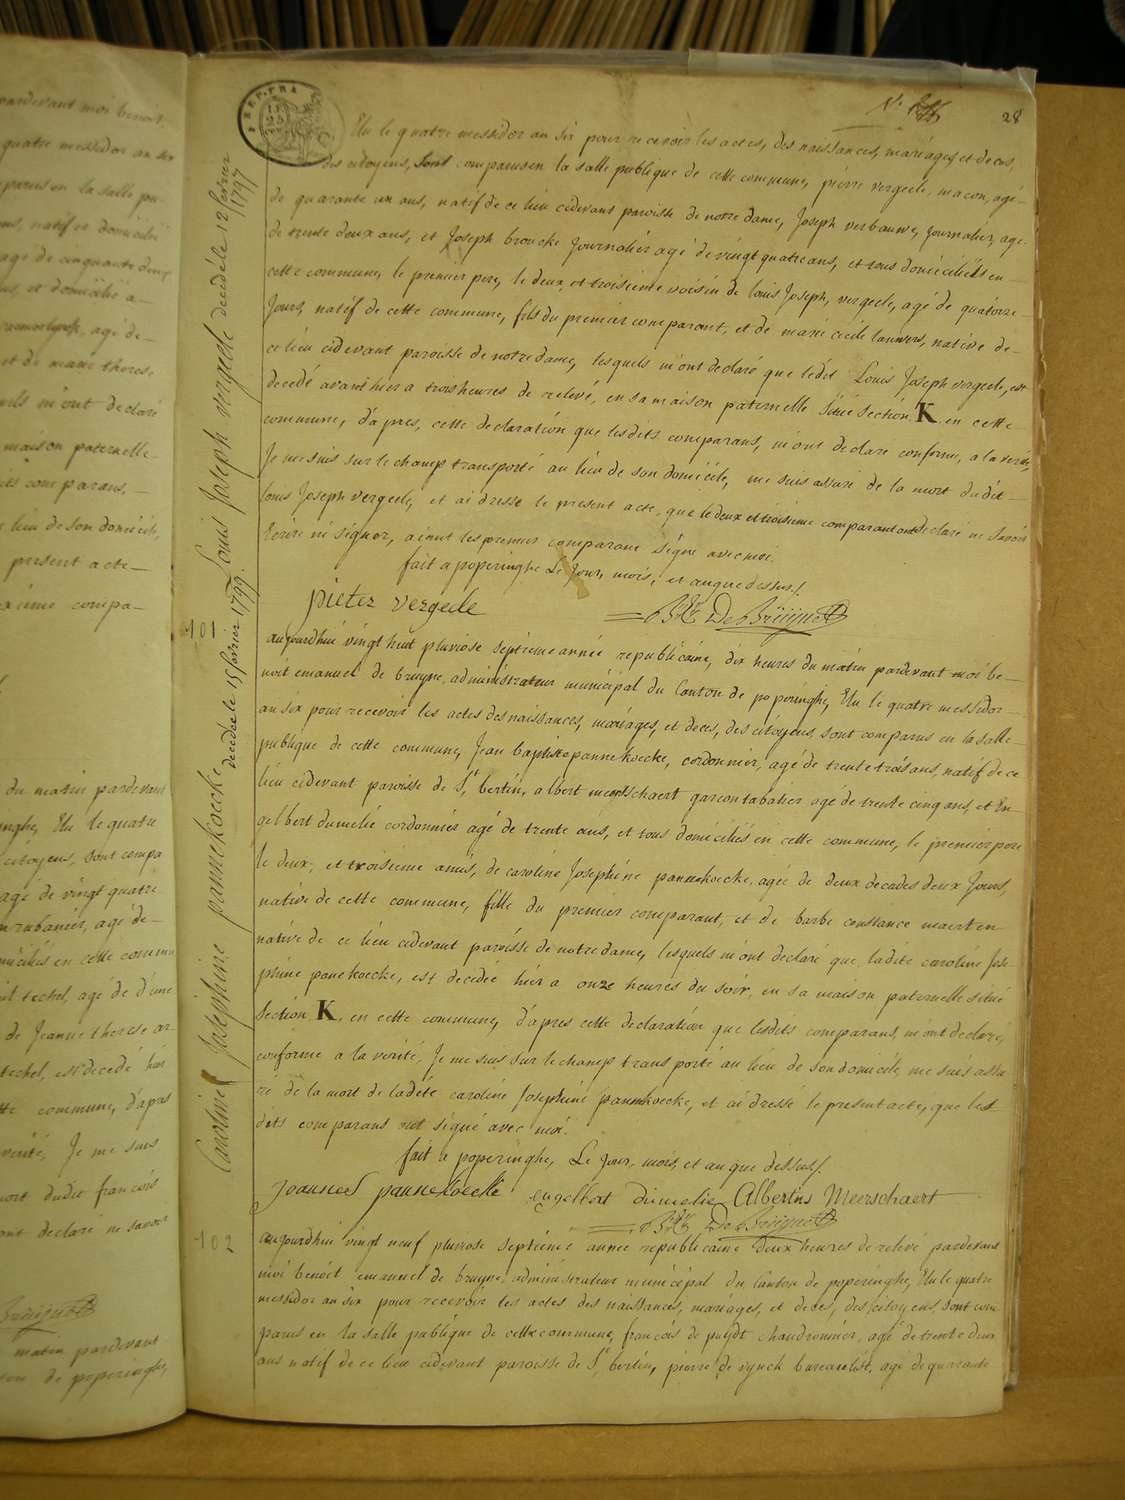 pardevant moi benoit
quatre messidor an six
parus en la salle pu-
natif et domicilié
agé de cinquante deux
et domicilié a-
agé de-
et de marie therese
m'ont declaré
maison paternelle-
dits comparans, -
lieu de son domicile,
present acte-
xième compa-
du matin pardevant
inghe, Elu le quatre
citoyens, sont compa
agé de vingt quatre
rubanier, agé de-
miciliés en cette commu
techel, agé de d'une
de Jeanne therese ar
techel, est decedé hier
tte commune, d'apres
verité, Je me suis
mort dudit francois
ont declaré ne savoir
matin pardevant
ton de poperinghe,
REP. FRA
N.
28
Elu le quatre messidor an six pour recevoir les actes, des naissances, mariages et deces,
des citoyens, sont comparus en la salle publique de cette commune, pierre vergeele, macon, agé-
de quarante un ans, natif de ce lieu cidevant paroisse de notre dame, Joseph verbauwe, journalier, agé-
de trente deux ans, et Joseph broucke Journalier agé de vingt quatre ans, et tous domiciliés en-
cette commune, le premier pere, le deux, et troisieme voisin de louis Joseph, vergeele, agé de quatorze-
Jours, natif de cette commune, fils du premier comparant, et de marie cecile lauwers, native de-
ce lieu cidevant paroisse de notre dame, lesquels m'ont declaré que ledit Louis Joseph vergeele, est
decedé avant hier a trois heures de relevé, en sa maison paternelle Situé Section K. en cette-
commune, d'apres, cette declaration que lesdits comparans, m'ont declaré conforme, a la verité,
Je me suis sur le champ transporté au lieu de son domicile, me suis assuré de la mort dudit-
louis Joseph vergeele, et ai dressé le present acte, que le deux et troisieme comparant ont declaré ne savoir
Ecrire ni signer, aiant les premier comparant signé avec moi.
fait a poperinghe Le Jour, mois, et an que dessus/.
pieter vergeele
B. E. De Bruyne
Louis Joseph vergeele decedé le 12 fevrier
1797
101.
aujourdhui vingt huit pluviose septieme année republicaine, dix heures du matin pardevant moi be-
noit emanuel de bruyne, administrateur municipal du Canton de poperinghe, Elu le quatre messidor-
an six pour recevoir les actes des naissances, mariages, et deces, des citoyens, sont comparus en la salle-
publique de cette commune, Jean baptiste pannekoecke, cordonnier, agé de trente trois ans, natif de ce
lieu cidevant paroisse de St. bertin, albert meerschaert garcon tabatier agé de trente cinq ans, et En-
gelbert dumelie cordonnier agé de trente ans, et tous domiciliés en cette commune, le premier pere
le deux, et troisieme amis, de caroline Josephine pannekoecke, agée de deux decades deux Jours,
native de cette commune, fille du premier comparant, et de barbe constance maerten
native de ce lieu cidevant paroisse de notre dame, lesquels m'ont declaré que ladite caroline Jose-
phine panekoecke, est decedée hier a onze heures du soir, en sa maison paternelle situé
Section K. en cette commune, d'apres cette declaration que lesdits comparans, m'ont declaré,
conforme a la verité, Je me suis sur le champ transporté au lieu de son domicile, me suis assu-
ré de la mort de ladite caroline Josephine pannekoecke, et ai dressé le present acte, que les-
dits comparans ont signé avec moi.
fait a poperinghe, Le Jour, mois, et an que dessus/.
Joannes pannekoecke engelbert dumelie Albertus Meerschaert
B. E. De Bruyne
Caroline Josephine pannekoecke
decedée le 15 fevrier 1799.
102.
aujourdhui vingt neuf pluviose septieme année republicaine deux heures de relevé pardevant
moi benoit emanuel de bruyne, administrateur municipal du Canton de poperinghe, Elu le quatre
messidor an six pour recevoir les actes des naissances, mariages, et deces, des citoyens, sont com
parus en la salle publique de cette commune, francois de puydt chaudronnier, agé de trente deux
ans natif de ce lieu cidevant paroisse de St. bertin, pierre de vynck bureauliste, agé de quarante